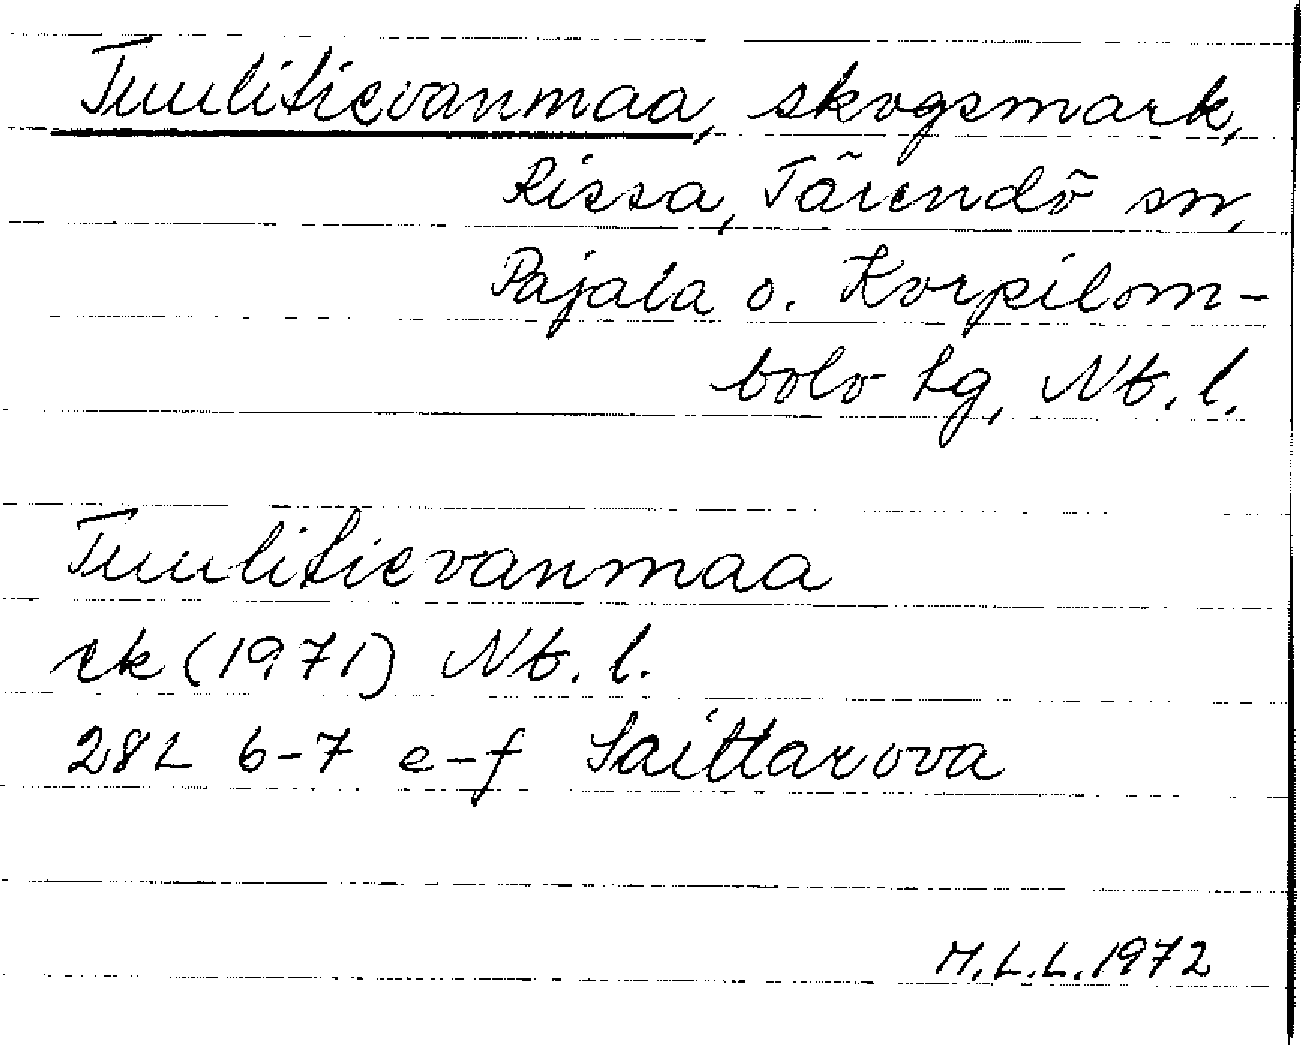 Tuulitievanmaa, skogsmark,
Rissa, Tärendö sn,
Pajala o. Korpilom-
bolo tg, Nb. l.
Tuulitievanmaa
ek (1971) Nb. l.
28L 6-7 e-f Saittarova
M.L.L. 1972